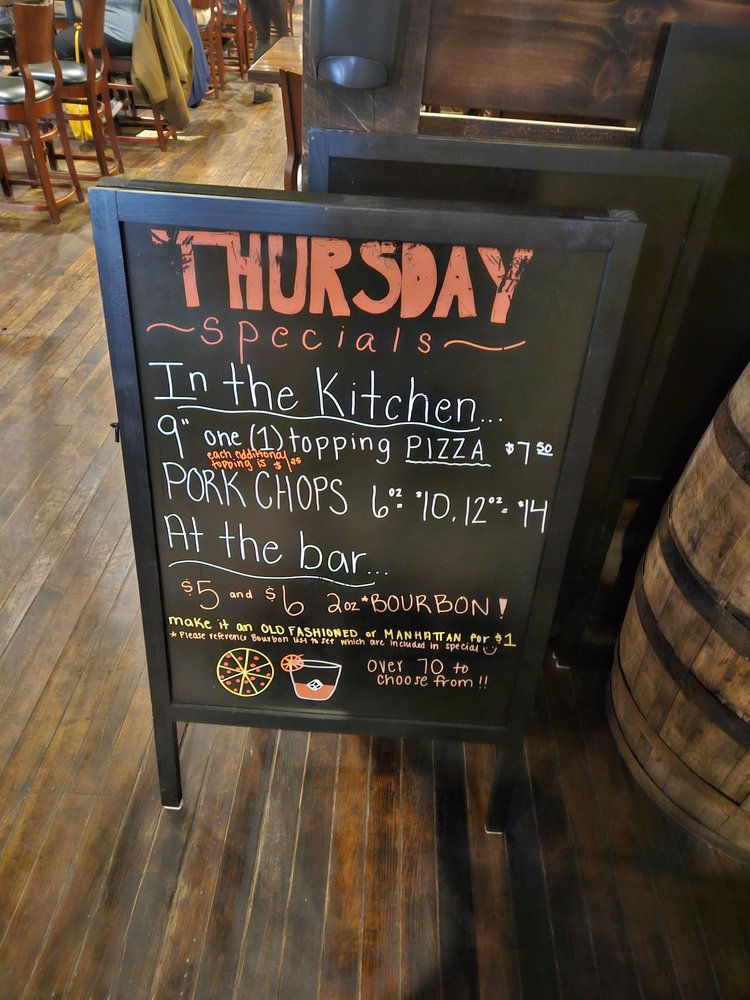 THURSDAY
~specials~
In the Kitchen...
9" one (1) topping PIZZA $7.50
each additional
topping is $1.25
PORK CHOPS 6oz- $10, 12oz- $14
At the bar...
$5 and $6 2oz *BOURBON!
make it an OLD FASHIONED or MANHATTAN for $1
*Please reference Bourbon list to see which are included in special
over 70 to
choose from!!